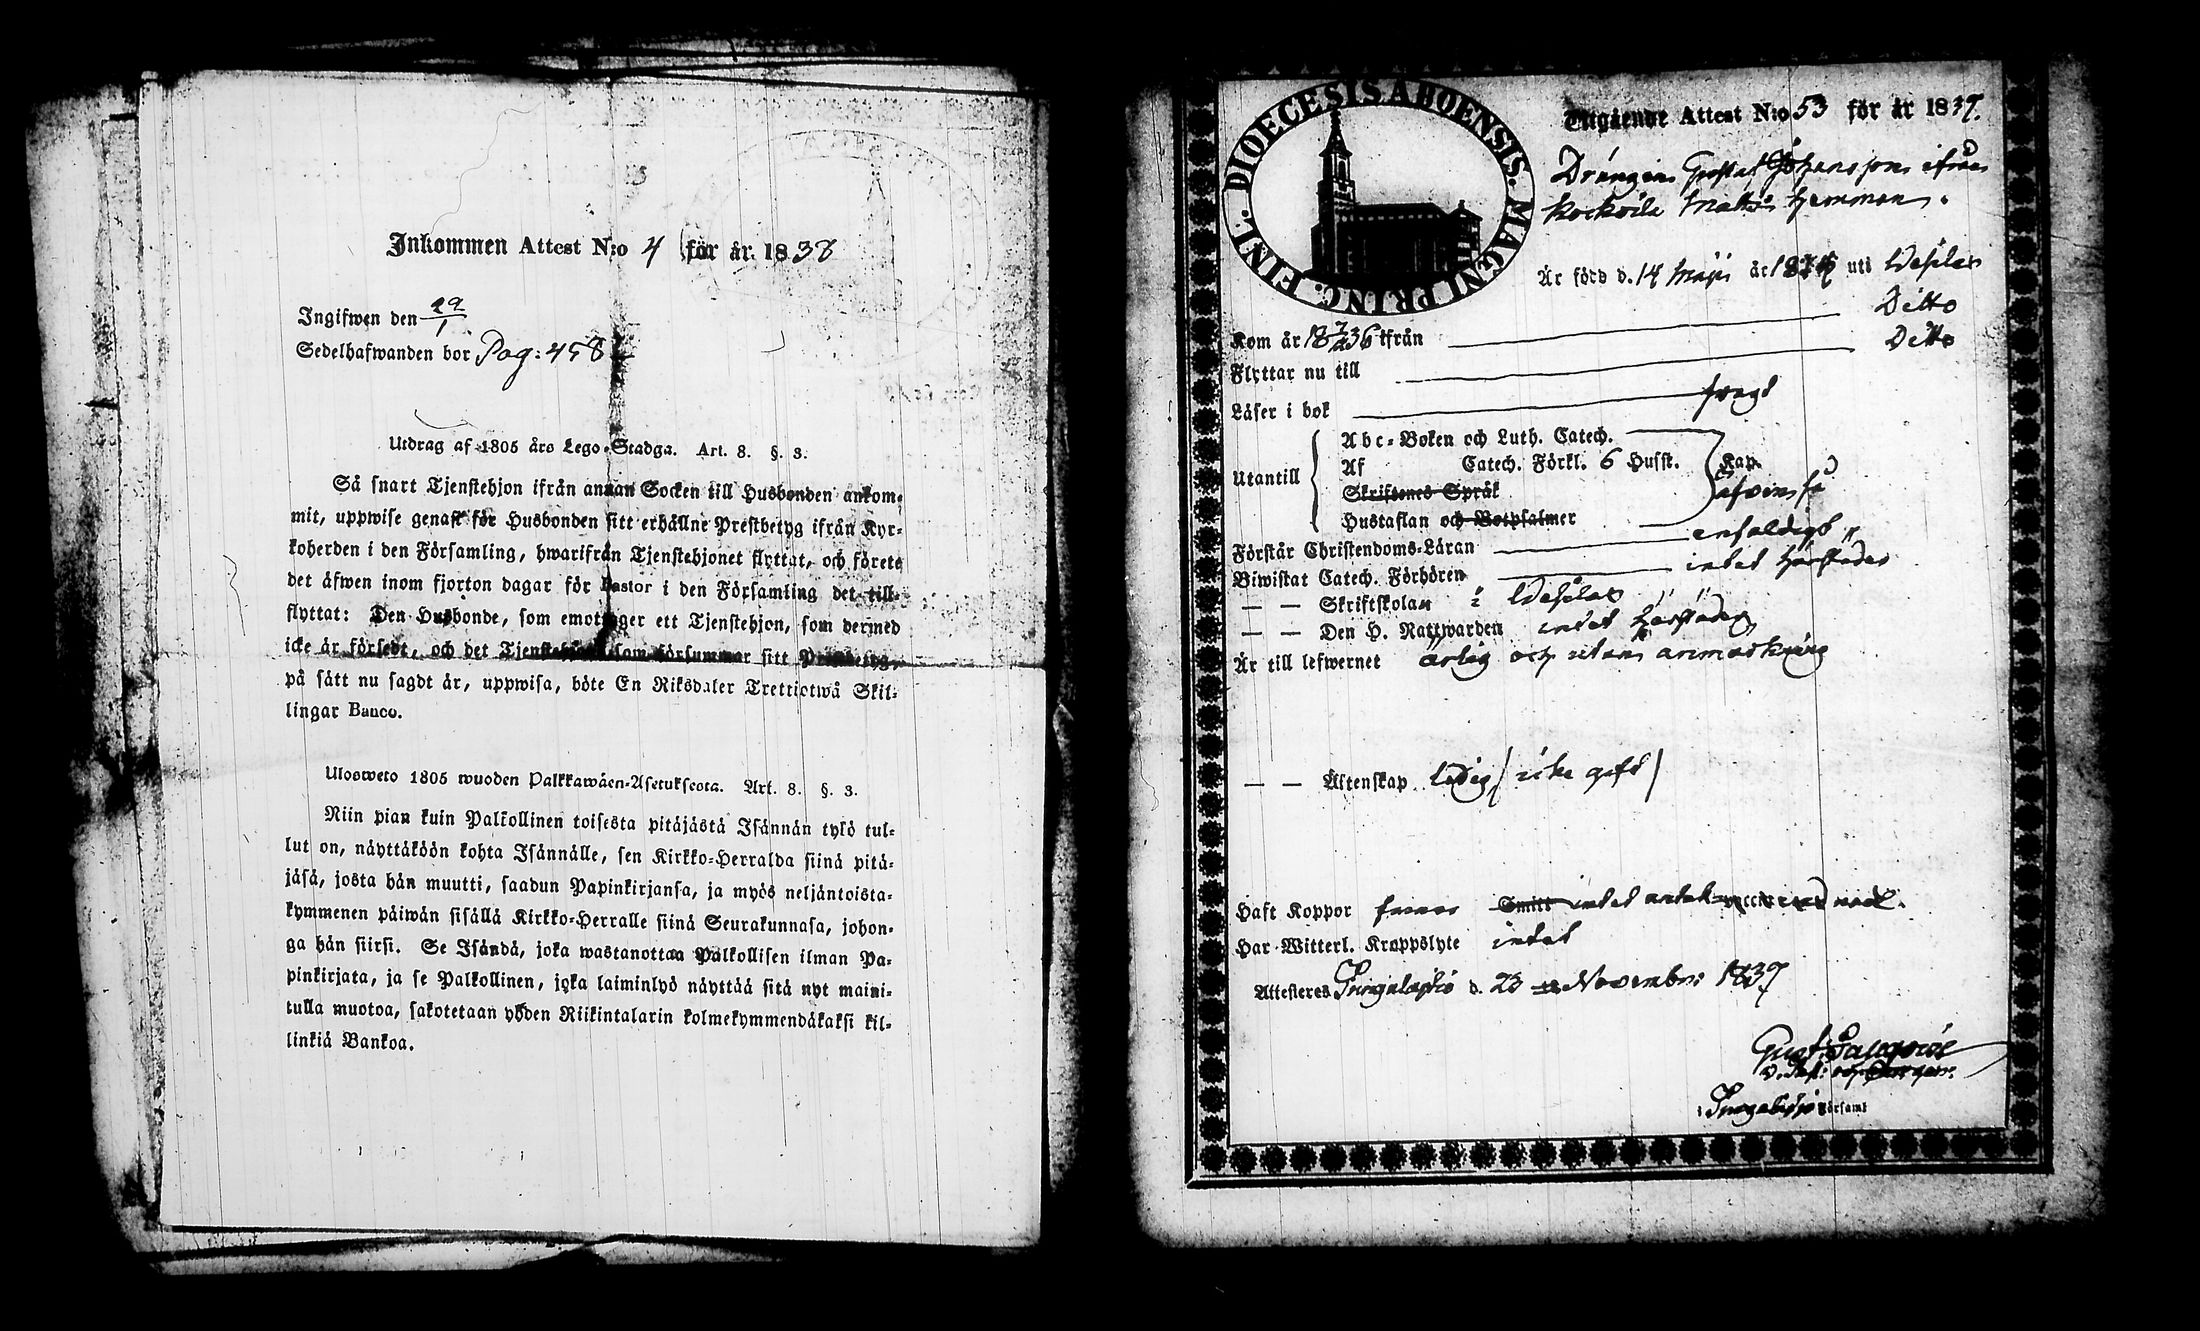 Inkommen Attest N:o 4 för år. 1838
Ingifwen den 29/1
Sedelhafwanden bor Pag: 458
Utdrag af 1805 års Lego-Stadga. Art. 8. §. 3.
Så snart Tjenstehjon ifrån annan Socken till Husbonden ankom-
mit, uppwise genast för Husbonden sitt erhållne Prestbetyg ifrån Kyr-
koherden i den Församling, hwarifrån Tjenstehjonet flyttat, och förete
det äfwen inom fjorton dagar för Pastor i den Församling det till-
flyttat: Den Husbonde, som emottager ett Tjenstehjon, som dermed
icke är försedt, och det Tjenstehjon som försummar sitt Prestbetyg,
på sätt nu sagdt är, uppwisa, böte En Riksdaler Trettiotwå Skil-
lingar Banco.
Ulosweto 1805 wuoden Palkkawäen-Asetuksesta. Art. 8. §. 3.
Niin pian kuin Palkollinen toisesta pitäjästä Isännän tykö tul-
lut on, näyttäköön kohta Isännälle, sen Kirkko-Herralda siinä pitä-
jäsä, josta hän muutti, saadun Papinkirjansa, ja myös neljäntoista-
kymmenen päiwän sisällä Kirkko-Herralle siinä Seurakunnasa, johon-
ga hän siirsi. Se Isändä, joka wastanottaa Palkollisen ilman Pa-
pinkirjata, ja se Palkollinen, joka laiminlyö näyttää sitä nyt maini-
tulla muotoa, sakotetaan yhden Riikintalarin kolmekymmendäkaksi kil-
linkiä Bankoa.
DIOECESIS ABOENSIS. MAGNI PRINC. FINL.
Utgående Attest N:o 53 för år 1837.
Drängen Gustaf Johansson ifrån
hemman.
Är född d. 14 Maji år uti
Ditto
Kom år 18 36 ifrån Ditto
Flyttar nu till
Läser i bok
Utantill
Abc-Boken och Luth. Catech.
Af Catech. Förkl. 6 Husst. Kap.
Skriftenes Språk äfvenså
Hustaflan och Botpsalmer
Förstår Christendoms-Läran enfaldigt
Biwistat Catech. Förhören intet härstädes
— — Skriftskolan i
— — Den H. Nattwarden intet härstädes
Är till lefwernet ärlig och utan anmärkning
— — Äktenskap ledig / icke gift /
Haft Koppor Smitt intet
Har Witterl. Kroppslyte intet
Attesteras d. 23 November 1837
Gust.
i Församl.